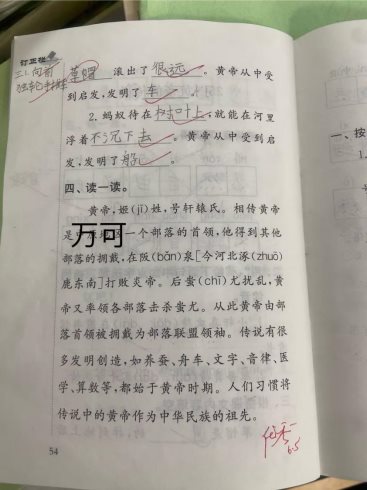 订正栏
三、1. 向前
草帽 滚出了很远。黄帝从中受
到启发,发明了车。
2. 蚂蚁待在树叶上,就能在河里
浮着不沉下去。黄帝从中受到启
发,发明了船。
四、读一读。
黄帝,姬(jī)姓,号轩辕氏。相传黄帝
是 万可 一个部落的首领,他得到其他
部落的拥戴,在阪(bǎn)泉[今河北涿(zhuō)
鹿东南]打败炎帝。后蚩(chī)尤扰乱,黄
帝又率领各部落击杀蚩尤。从此黄帝由部
落首领被拥戴为部落联盟领袖。传说有很
多发明创造,如养蚕、舟车、文字、音律、医
学、算数等,都始于黄帝时期。人们习惯将
传说中的黄帝作为中华民族的祖先。
54
6.5
一、按